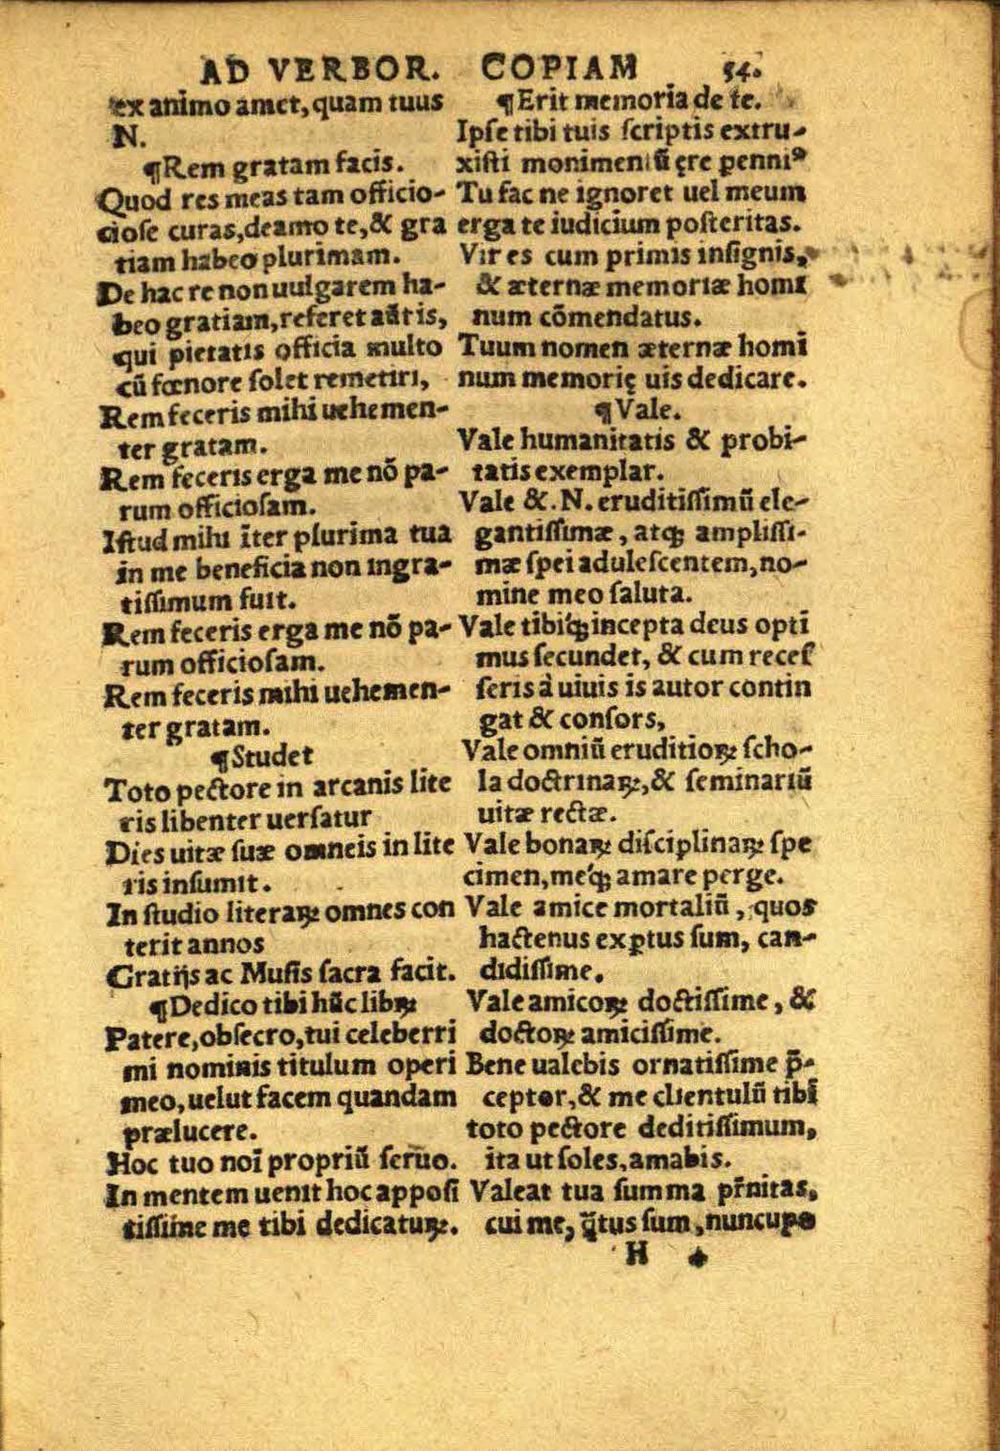 AD VERBOR. COPIAM 54.
ex animo amet, quam tuus
N.
¶Rem gratam facis.
Quod res meas tam officio-
ciose curas, deamo te, & gra
tiam habeo plurimam.
De hac re non uulgarem ha-
beo gratiam, referet aũt is,
qui pietatis officia multo
cũ fœnore solet remetiri,
Rem feceris mihi uehemen-
ter gratam.
Rem feceris erga me nõ pa-
rum officiosam.
Istud mihi ĩter plurima tua
in me beneficia non ingra-
tissimum fuit.
Rem feceris erga me nõ pa-
rum officiosam.
Rem feceris mihi uehemen-
ter gratam.
¶Studet
Toto pectore in arcanis lite
ris libenter uersatur
Dies uitæ suæ omneis in lite
ris insumit.
In studio literaꝝ omnes con
terit annos
Gratijs ac Musis sacra facit.
¶Dedico tibi hũc libꝝ
Patere, obsecro, tui celeberri
mi nominis titulum operi
meo, uelut facem quandam
prælucere.
Hoc tuo noĩ propriũ seruo.
In mentem uenit hoc apposi
tissime me tibi dedicatuꝝ.
¶Erit memoria de te.
Ipse tibi tuis scriptis extru-
xisti monimentũ ęre ꝑenniꝰ
Tu fac ne ignoret uel meum
erga te iudicium posteritas.
Vir es cum primis insignis,
& æternæ memoriæ homi
num cõmendatus.
Tuum nomen æternæ homi
num memorię uis dedicare.
¶Vale.
Vale humanitatis & probi-
tatis exemplar.
Vale &. N. eruditissimũ ele-
gantissimæ, atqꝫ amplissi-
mæ spei adulescentem, no-
mine meo saluta.
Vale tibi'qꝫ incepta deus opti
mus secundet, & cum recef
seris à uiuis is autor contin
gat & consors,
Vale omniũ eruditioꝝ scho-
la doctrinaꝝ, & seminariũ
uitæ rectæ.
Vale bonaꝝ disciplinaꝝ spe
cimen, me'qꝫ amare perge.
Vale amice mortaliũ, quos
hactenus exꝑtus sum, can-
didissime.
Vale amicoꝝ doctissime, &
doctoꝝ amicissime.
Bene ualebis ornatissime p̃-
ceptor, & me clientulũ tibi
toto pectore deditissimum,
ita ut soles, amabis.
Valeat tua summa pr̃nitas,
cui me, q̃tus sum, nuncupo
H